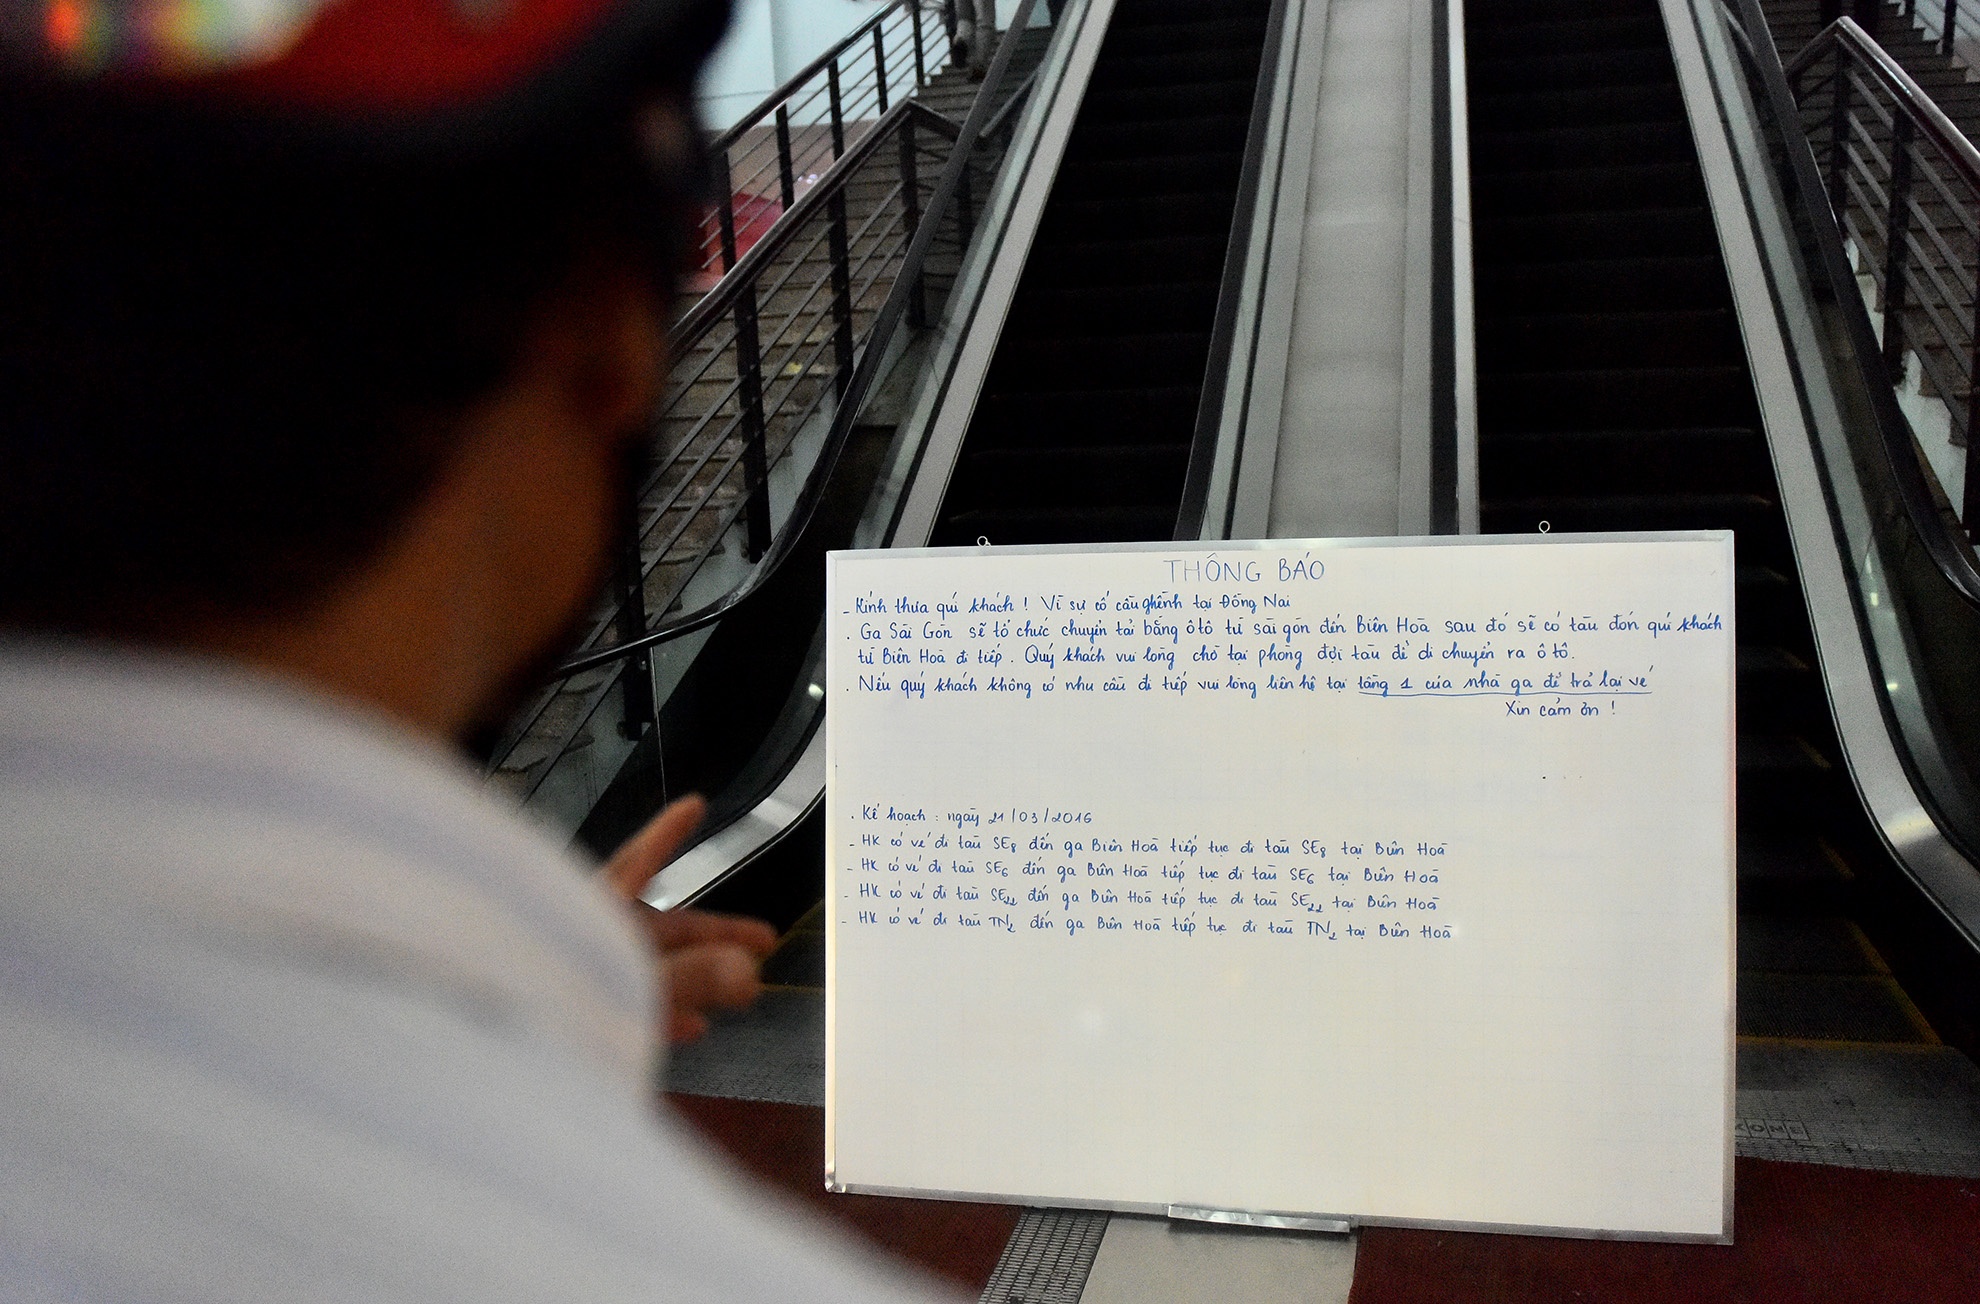 THÔNG BÁO
- Kính thưa quí khách ! Vì sự cố cầu ghềnh tại Đồng Nai
. Ga Sài Gòn sẽ tổ chức chuyển tải bằng ôtô từ sài gòn đến Biên Hoà sau đó sẽ có tàu đón quí khách
từ Biên Hoà đi tiếp . Quý khách vui lòng chờ tại phòng đợi tàu để di chuyển ra ô tô.
. Nếu quý khách không có nhu cầu đi tiếp vui lòng liên hệ tại tầng 1 của nhà ga để trả lại vé
Xin cảm ơn !
. Kế hoạch : ngày 21/03/2016
- HK có vé đi tàu SE8 đến ga Biên Hoà tiếp tục đi tàu SE8 tại Biên Hoà
- HK có vé đi tàu SE6 đến ga Biên Hoà tiếp tục đi tàu SE6 tại Biên Hoà
- HK có vé đi tàu SE22 đến ga Biên Hoà tiếp tục đi tàu SE22 tại Biên Hoà
- HK có vé đi tàu TN2 đến ga Biên Hoà tiếp tục đi tàu TN2 tại Biên Hoà
KONE